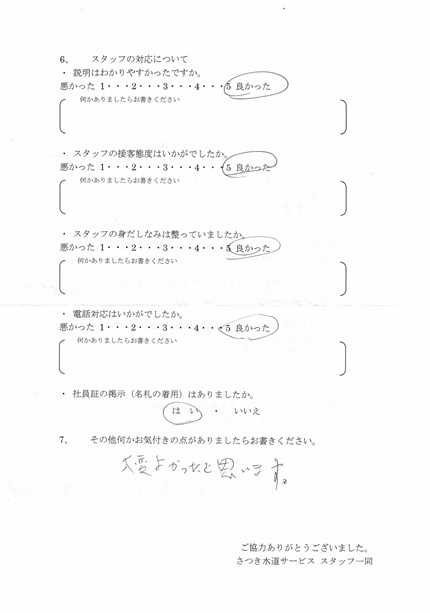 6、 スタッフの対応について
・ 説明はわかりやすかったですか。
悪かった 1・・・2・・・3・・・4・・・5 良かった
何かありましたらお書きください
・ スタッフの接客態度はいかがでしたか。
悪かった 1・・・2・・・3・・・4・・・5 良かった
何かありましたらお書きください
・ スタッフの身だしなみは整っていましたか。
悪かった 1・・・2・・・3・・・4・・・5 良かった
何かありましたらお書きください
・ 電話対応はいかがでしたか。
悪かった 1・・・2・・・3・・・4・・・5 良かった
何かありましたらお書きください
・ 社員証の掲示（名札の着用）はありましたか。
はい ・ いいえ
7、 その他何かお気付きの点がありましたらお書きください。
大変よかったと思います。
ご協力ありがとうございました。
さつき水道サービス スタッフ一同